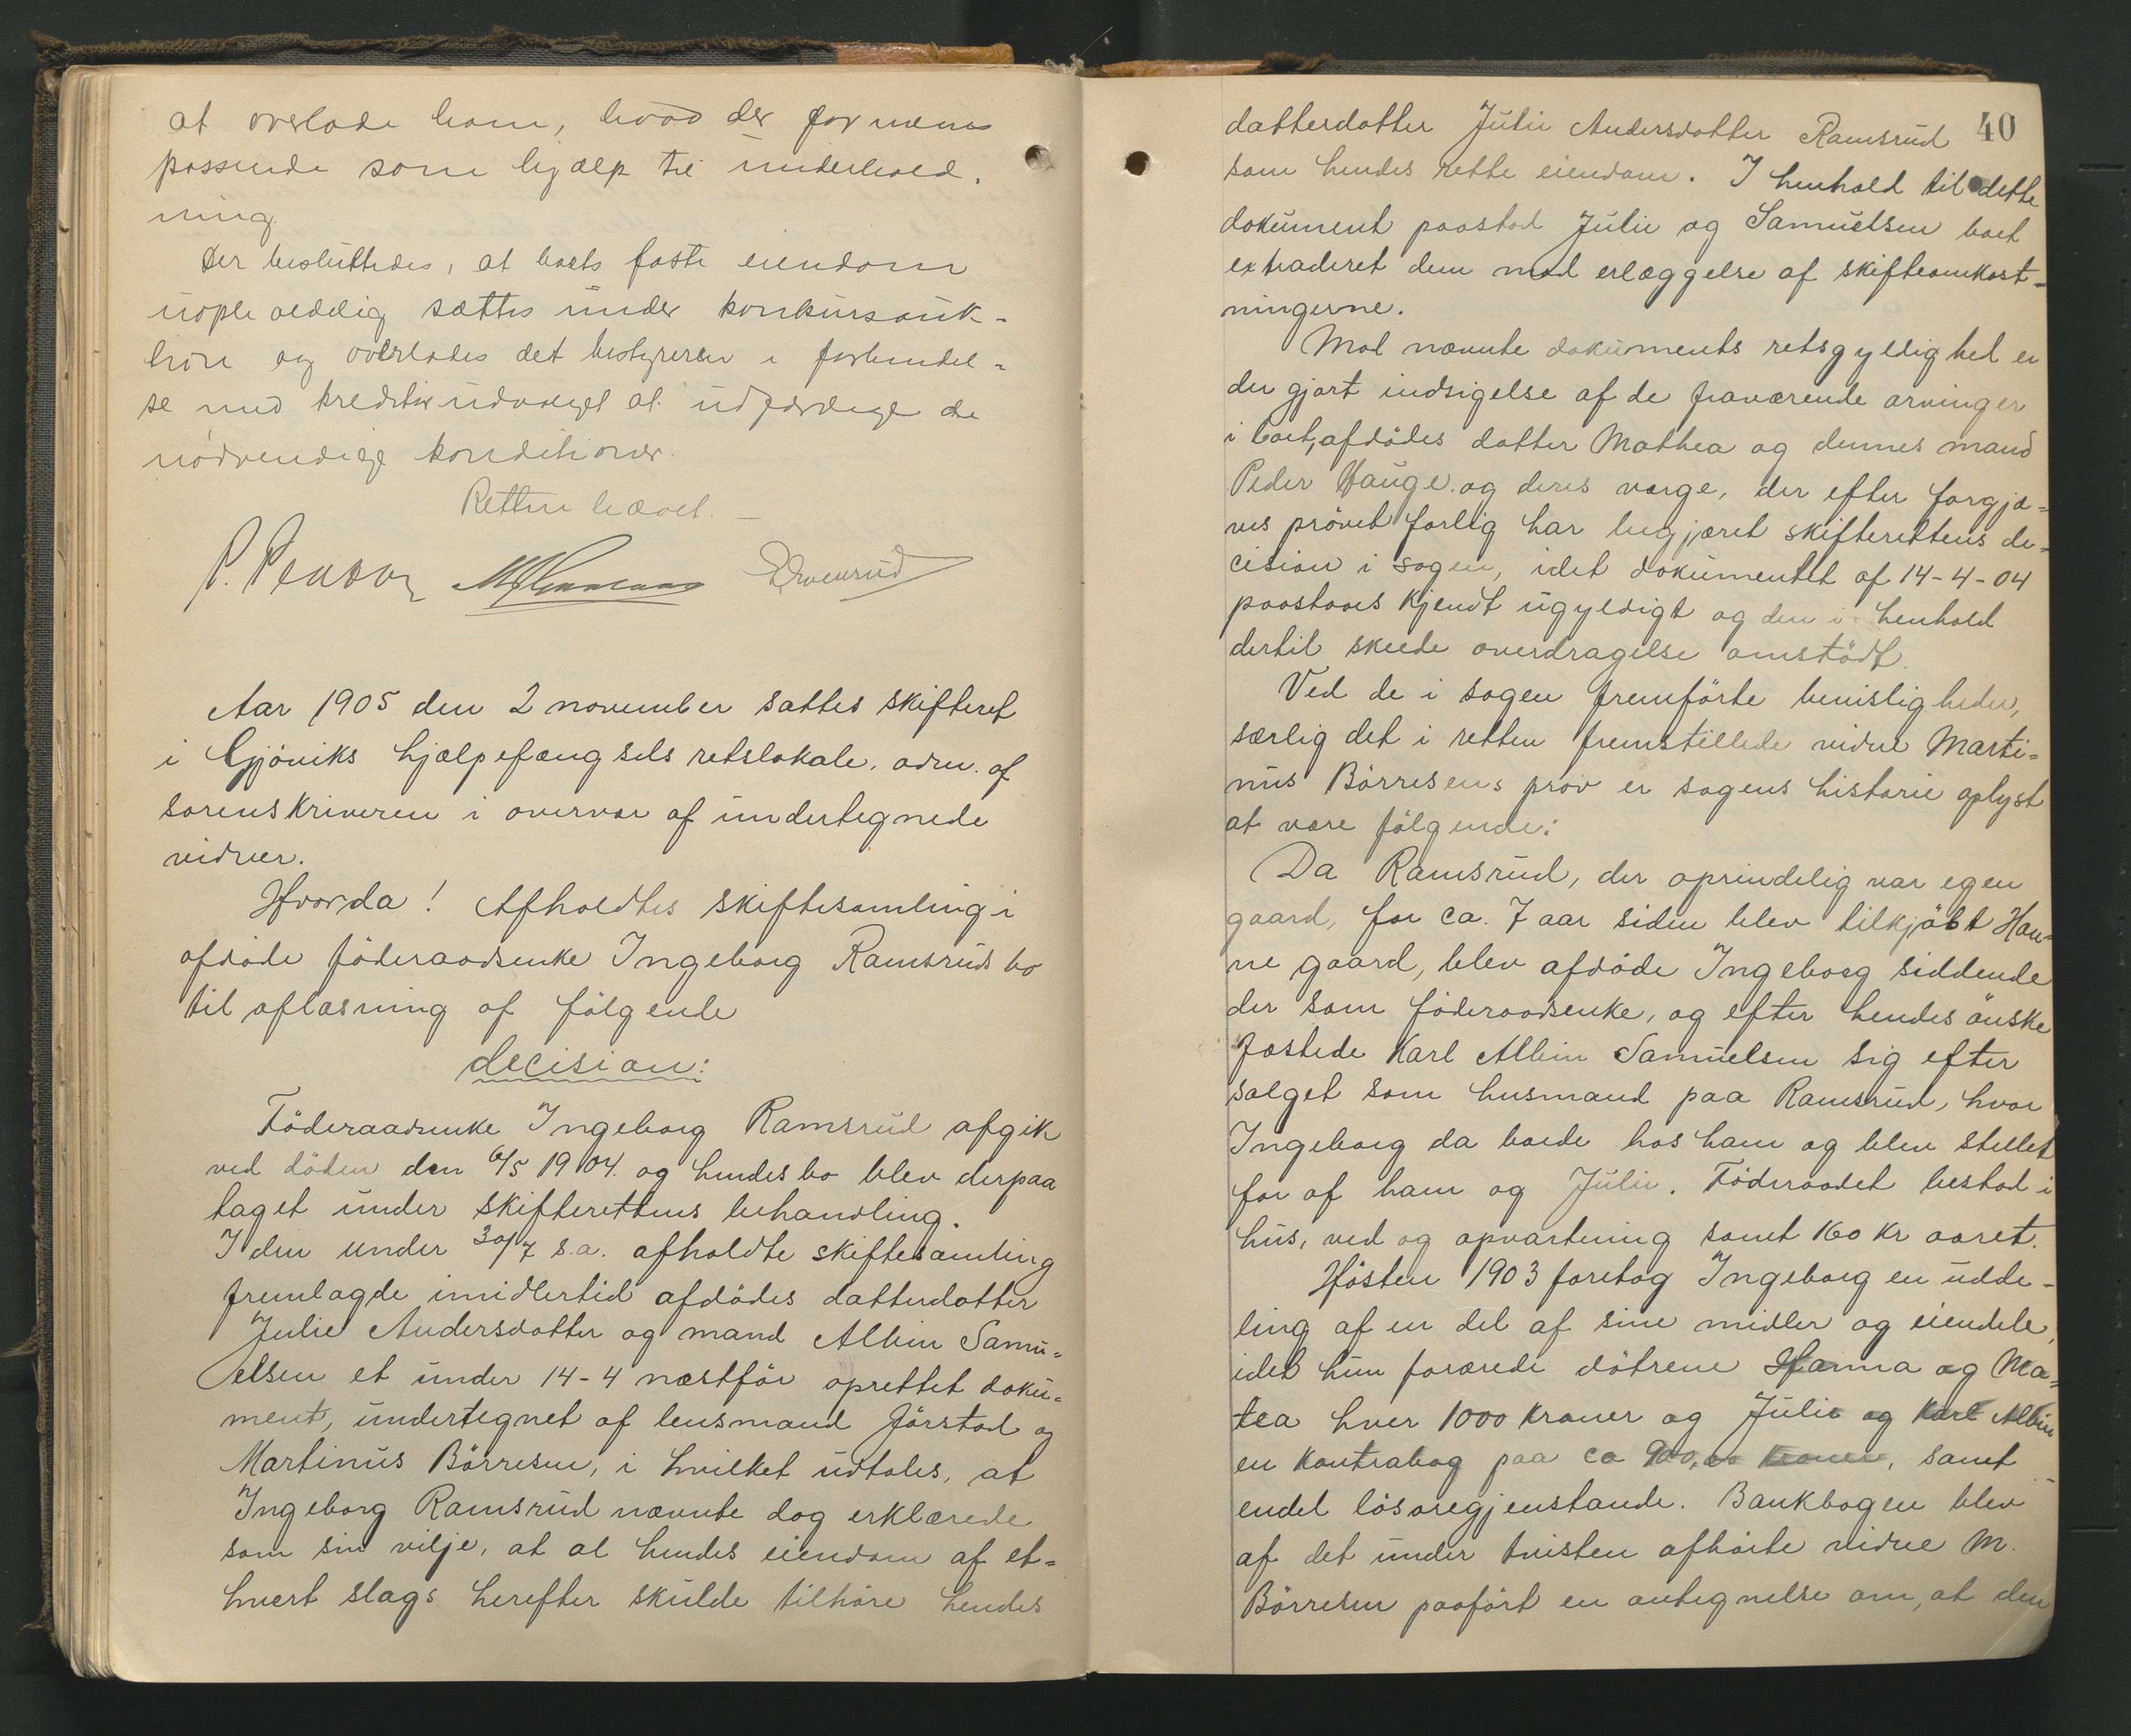 at overlade ham, hvad der formenes
passende som hjælp til underhold.
ning.
Der besluttedes, at boets faste eiendom
uopholdelig sættes under konkursauk-
tion og overlades det bestyreren i forbindel-
se med kreditorudvalget at udfærdige de
nødvendige konditioner.
Retten hævet.
Aar 1905 den 2 november sattes skifteret
i Gjöviks hjælpefængsels retslokale, adm. af
sorenskriveren i overvær af undertegnede
vidner.
Hvorda! Afholdtes skiftesamling i
afdöde föderaadsenke Ingeborg Ramsruds bo
til aflæsning af fölgende
decision:
Föderaadsenke Ingeborg Ramsrud afgik
ved döden den 6/5 1904. og hendes bo blev derpaa
taget under skifterettens behandling.
I den under 30/7 s.a. afholdte skiftesamling
fremlagde imidlertid afdödes datterdatter
Julie Andersdatter og mand Albin Samu=
elsen et under 14-4 næstför oprettet doku=
ment, undertegnet af lensmand Jörstad og
Martinus Börresen, i hvilket udtales, at
Ingeborg Ramsrud nævnte dag erklærede
som sin vilje, at al hendes eiendom af et=
hvert slags herefter skulde tilhöre hendes
40
datterdatter Julie Andersdatter Ramsrud
som hendes rette eiendom. I henhold til dette
dokument paastod Julie og Samuelsen boet
extraderet dem mod erlæggelse af skifteomkost=
ningerne.
Mod nævnte dokuments retsgyldighed er
der gjort indsigelse af de fraværende arvinger
i boet, afdödes datter Mathea og dennes mand
Peder Hauge og deres værge, der efter forgjæ=
ves prövet forlig har begjæret skifterettens de=
cision i sagen, idet dokumentet af 14-4-04
paastaaes kjendt ugyldigt og den i henhold
dertil skeede overdragelse omstödt.
Ved de i sagen fremförte bevisligheder,
særlig det i retten fremstillede vidne Marti=
nus Börresens prov er sagens historie oplyst
at være fölgende:
Da Ramsrud, der oprindelig var egen
gaard, for ca. 7 aar siden blev tilkjöbt Han=
ne gaard, blev afdöde Ingeborg siddende
der som föderaadsenke, og efter hendes önske
fæstede Karl Albin Samuelsen sig efter
salget som husmand paa Ramsrud, hvor
Ingeborg da boede hos ham og blev stellet
for af ham og Julie. Föderaadet bestod i
hus, ved og opvartning samt 160 kr aaret.
Hösten 1903 foretog Ingeborg en udde-
ling af en del af sine midler og eiendele,
idet hun forærede dötrene Hanna og Ma=
tea hver 1000 kroner og Julie og Karl Albin
en kontrabog paa ca 900,00 kroner, samt
endel lösöregjenstande. Bankbogen blev
af det under tvisten afhörte vidne M.
Börresen paafört en antegnelse om, at den